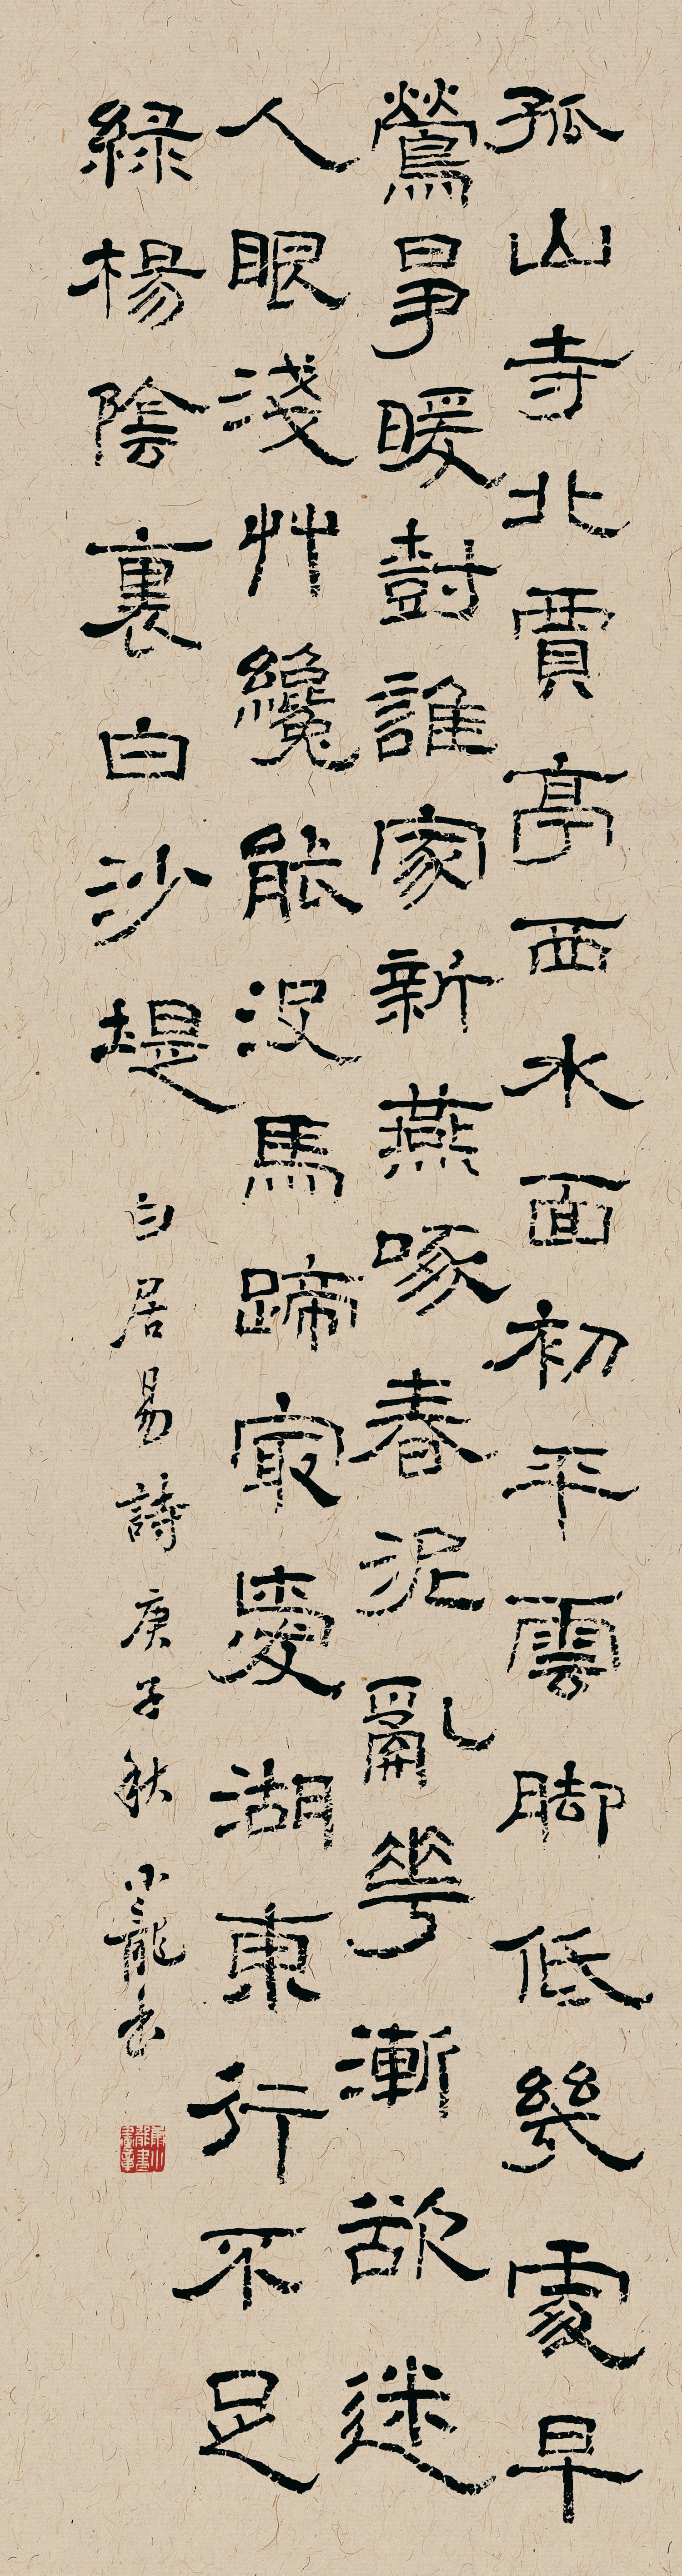 孤山寺北賈亭西水面初平雲脚低幾處早
鶯爭暖尌誰家新燕啄春泥亂華漸欲迷
人眼淺艸纔能没馬蹄冣愛湖東行不足
綠楊陰裏白沙堤
白居易詩庚子秋小龍書